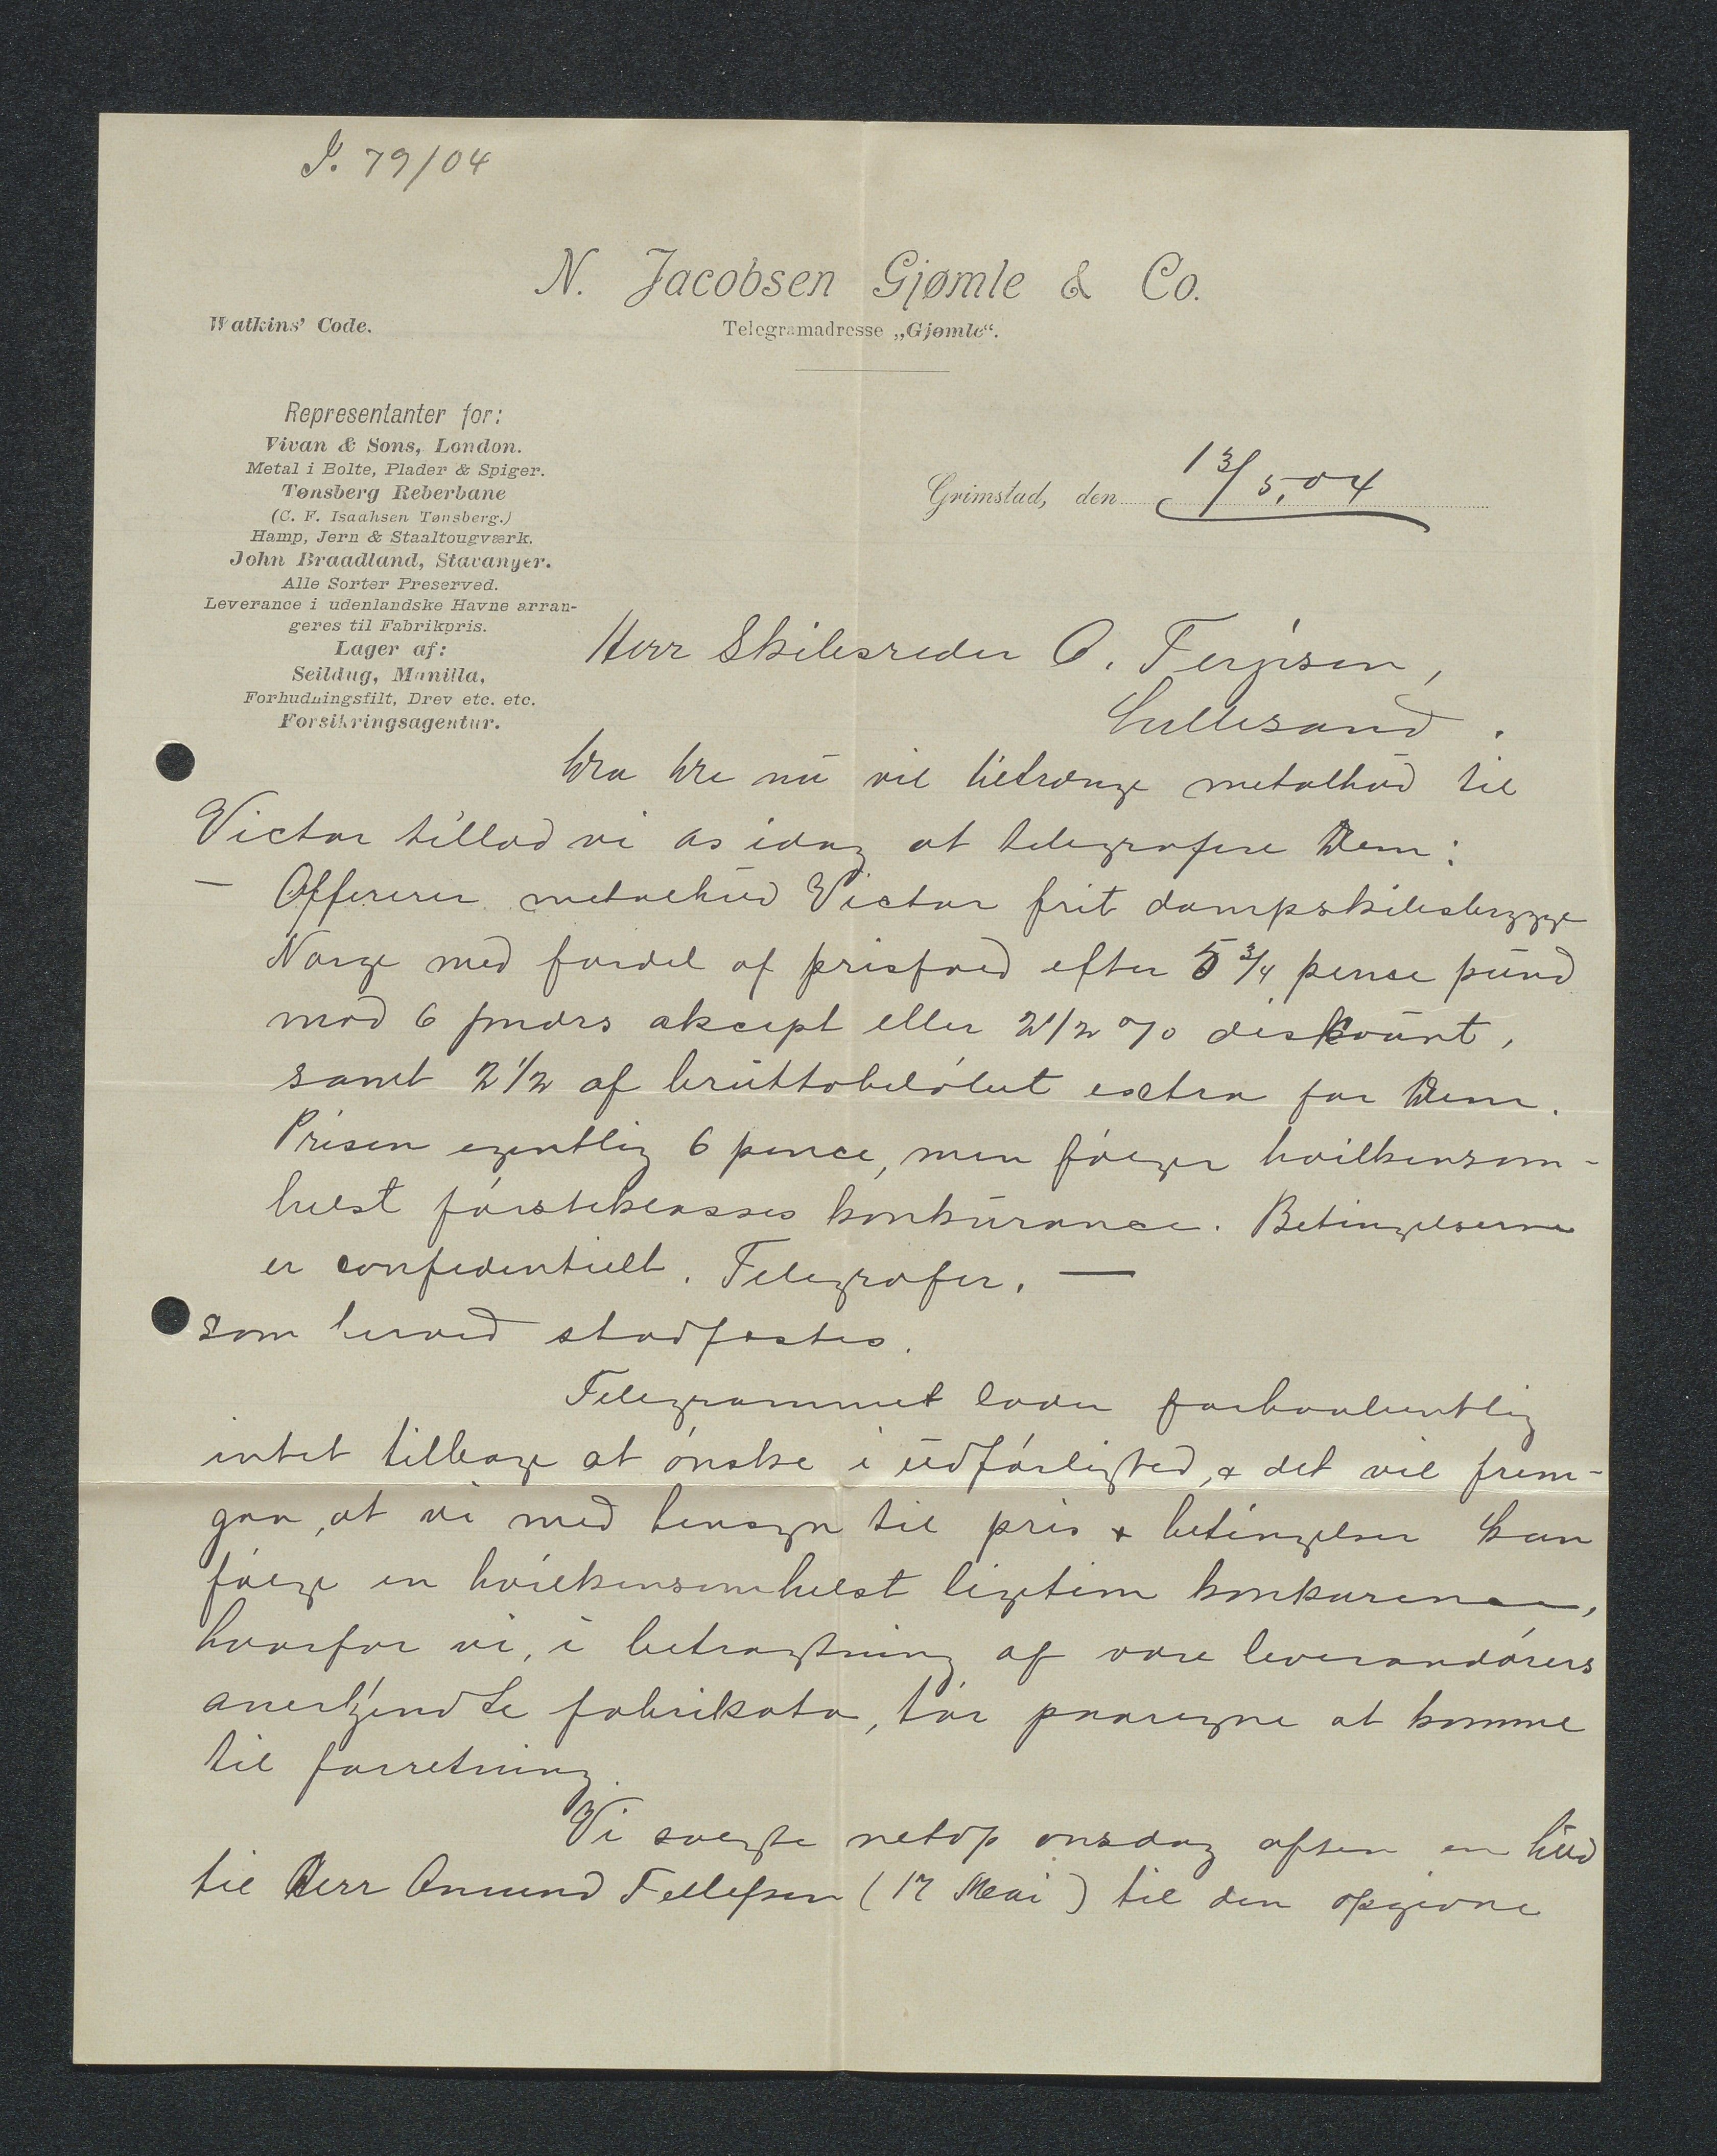 J. 79/04
N. Jacobsen Gjømle & Co.
Watkins' Code.
Telegramadresse „Gjømle“.
Representanter for:
Vivan & Sons, London.
Metal i Bolte, Plader & Spiger.
Tønsberg Reberbane
(C. F. Isaahsen Tønsberg.)
Hamp, Jern & Staaltougværk.
John Braadland, Stavanger.
Alle Sorter Preserved.
Leverance i udenlandske Havne arran-
geres til Fabrikpris.
Lager af:
Seildug, Manilla,
Forhudningsfilt, Drev etc. etc.
Forsikringsagentur.
Grimstad, den 13/5.04
Herr Skibsreder O. Terjesen,
Lillesand.
Da De nu vil tiltrænge metalhud til
Victor tillod vi os idag at telegrafere Dem:
— Offererer metalhud Victor frit dampskibsbrygge
Norge med fordel af prisfald efter 5 3/4 pence pund
mod 6 mdrs akcept eller 2 1/2 % diskount,
samt 2 1/2 af bruttobeløbet extra for Dem.
Prisen egentlig 6 pence, men følger hvilkensom-
helst førsteklasses konkurance. Betingelserne
er confidentielt. Telegrafer. —
som herved stadfæstes.
Telegrammet lader forhaabentlig
intet tilbage at ønske i udførlighed, & det vil frem-
gaa, at vi med hensyn til pris & betingelser kan
følge en hvilkensomhelst ligitim konkurance,
hvorfor vi, i betragtning af vore leverandørers
anerkjendte fabrikata, tør paaregne at komme
til forretning.
Vi solgte netop onsdag aften en hud
til Herr Onund Tellefsen (17 Mai) til den opgivne